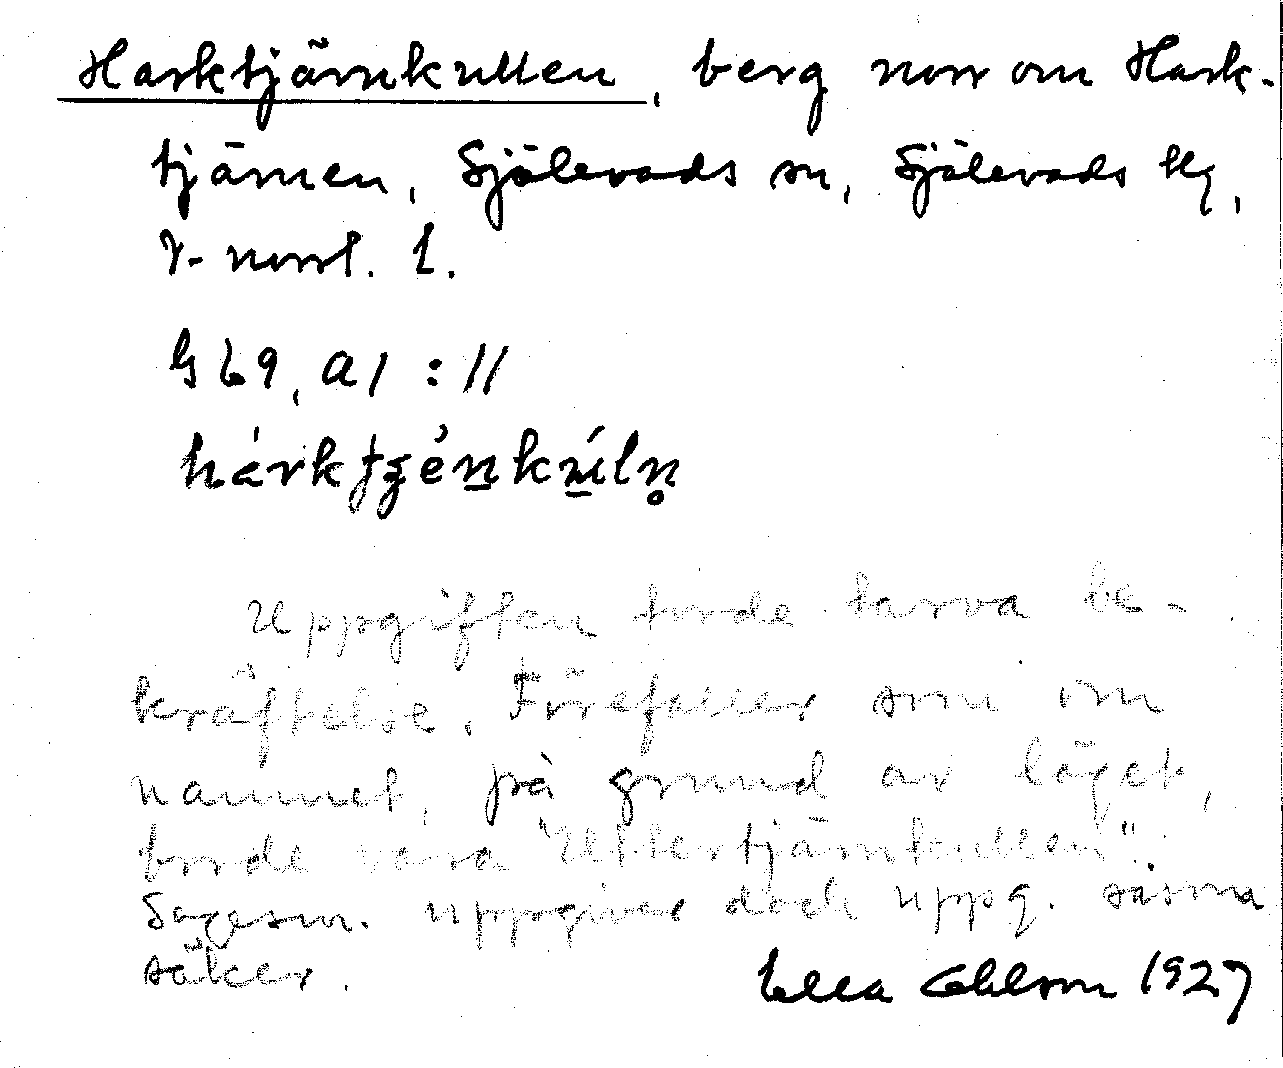 Harktjärnkullen, berg norr om Hark-
tjärnen, Själevads sn, Själevads tlg,
V-norrl. l.
G 69, a1 : 11
hárktʒénkúln̥
Uppgiften torde tarva be-
kräftelse. Förefaller som om
namnet, på grund av läget,
borde vara "Uttertjärnkullen".
Sagesm. uppgiver dock uppg. såsom
säker.
Ella Ohlson 1927